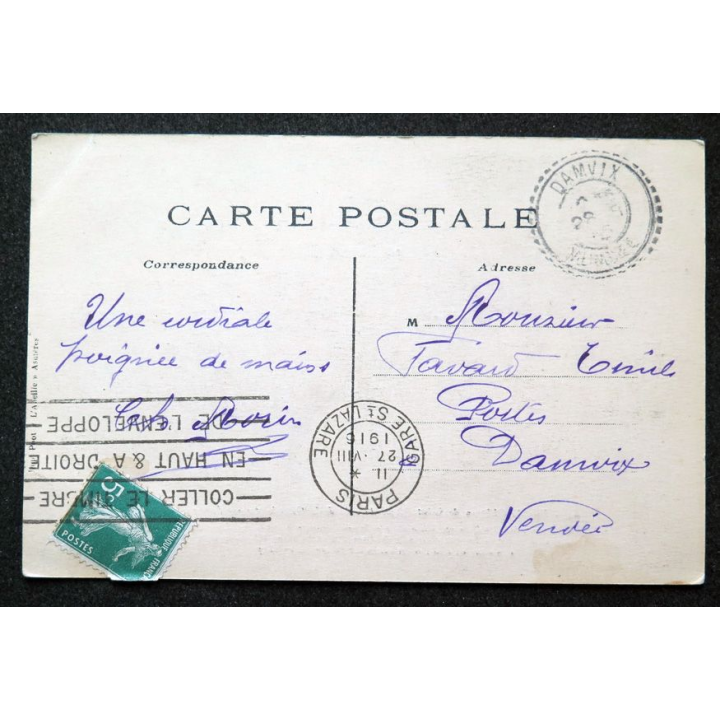 CARTE POSTALE
Correspondance
Adresse
Une cordiale
poignée de mains
Morin
M Monsieur
Favard Emile
Postes
Damvix
Vendée
DAMVIX
VENDÉE
PARIS
GARE St LAZARE
11 *
27 · VIII
1916
COLLER LE TIMBRE
EN HAUT & A DROITE
DE L'ENVELOPPE
5c
POSTES
REPUBLIQUE FRANC
Phot L'Abeille » Asnières